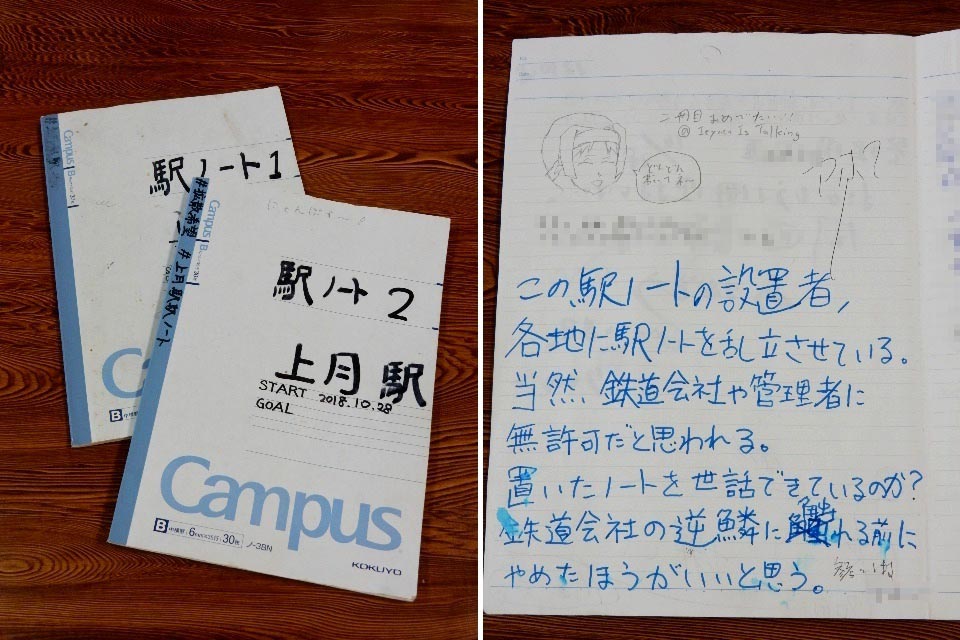 Campus
駅ノート1
#拡散希望 #上月駅駅ノート
Campus
にゃんぱすー
駅ノート2
上月駅
START 2018.10.28
GOAL
Campus
B 中横罫 6mm×35行 30枚 ノ-3BN
KOKUYO
B 中横罫
二冊目おめでたい!!
どんどん
アホ?
この駅ノートの設置者,
各地に駅ノートを乱立させている。
当然、鉄道会社や管理者に
無許可だと思われる。
置いたノートを世話できているのか?
鉄道会社の逆鱗に触れる前に
やめたほうがいいと思う。